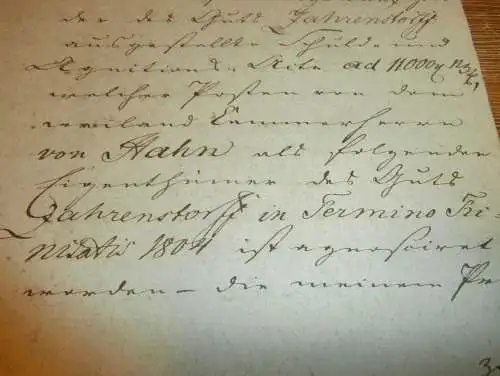 der des Guts Zahrenstorff
ausgestellte Schuld- und
Agnitions-Acte ad 11000
welcher Posten von dem
weiland Cammerherrn
von Hahn als folgenden
Eigenthümer des Guts
Zahrenstorff in Termino Tri-
nitatis 1804 ist agnosciret
worden – die meinem